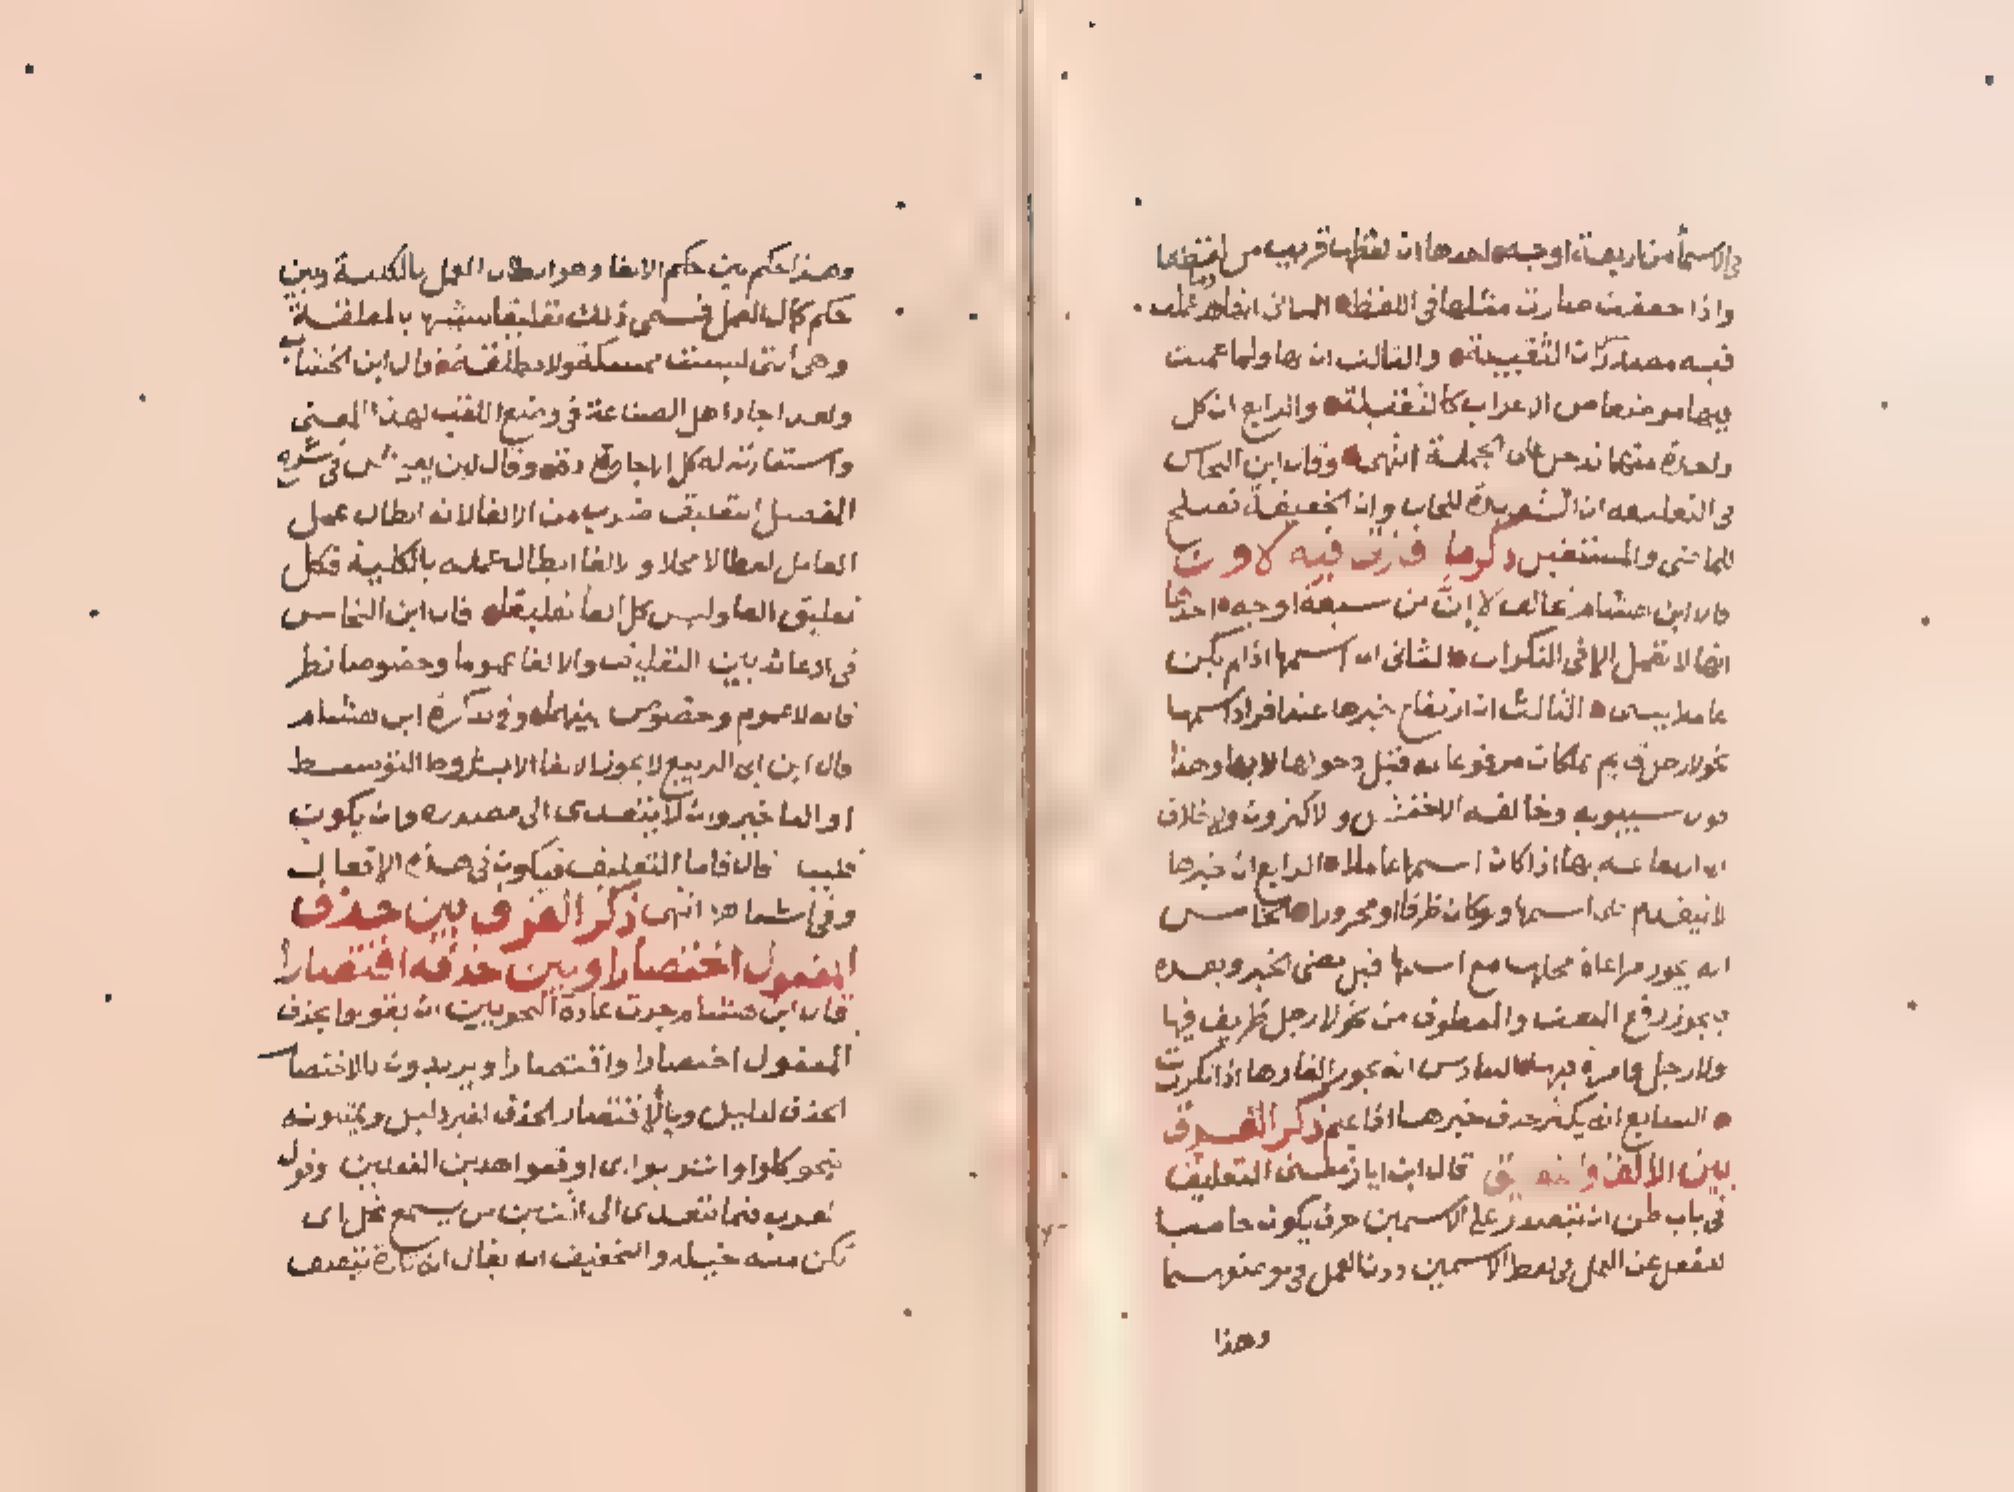 في الاسما من اربعة اوجه احدها ان لفظها قريب من لفظها
واذا خففت صارت مثلها في اللفظ الثاني انها عملت
فيه مصدر كان الثقيلة والثالث ان بها ولما عملت
فيها موضعا من الاعراب كالثقيلة والرابع ان كل
واحدة منهما تدخل على الجملة انتهى وقال ابن النحاس
في التعليقه ان الشديدة للحال وان الخفيفة تصلح
للماضي والمستقبل ذكر ما افترق فيه لا وان
قال ابن هشام تخالف لا إنّ من سبعة اوجه احدها
انها لا تعمل الا في النكرات الثاني ان اسمها اذا لم يكن
عاملا يبنى الثالث ان ارتفاع خبرها عند افراد اسمها
نحو لا رجل قايم بما كان مرفوعا به قبل دخولها لا بها وهذا
قول سيبويه وخالفه الاخفش والاكثرون ولا خلاف
ان ارتفاعه بها اذا كان اسمها عاملا الرابع ان خبرها
لا يتقدم على اسمها ولو كان ظرفا او مجرورا الخامس
انه يجوز مراعاة محلها مع اسمها قبل مضي الخبر وبعده
فيجوز رفع النعت والمعطوف من نحو لا رجل ظريف فيها
ولا رجل وامرة فيها السادس انه يجوز الغاوها اذا تكررت
السابع انه يكثر حذف خبرها اذا علم ذكر الفرق
بين الالغا والتعليق قال ابن اياز معنى التعليق
في باب ظن ان يتصدر على الاسمين حرف يكون حاجبا
للفعل عن العمل في لفظ الاسمين دون العمل في موضعهما
وهذا
وهذا حكم بين حكم الالغا وهو ابطال العمل بالكلية وبين
حكم كمال العمل فسمى ذلك تعليقا تشبيها بالمعلقة
وهي التي ليست ممسكة ولا مطلقة قال ابن الخشاب
ولقد اجاد اهل الصناعة في وضع اللقب لهذا المعنى
واستعارته له كل الاجادة وقال ابن يعيش في شرح
المفصل التعليق ضرب من الالغا لانه ابطال عمل
العامل لفظا لا محلا والالغا ابطال عمله بالكلية فكل
تعليق الغا وليس كل الغا تعليقا قال ابن النحاس
في ادعائه بين التعليق والالغا عموما وخصوصا نظر
فانه لا عموم وخصوص بينهما وفي تذكرة ابن هشام
قال ابن ابي الربيع لا يجوز الالغا الا بشروط التوسط
او التاخير وان لا يتعدى الى مصدره وان يكون
قلبيا قال فاما التعليق فيكون في هذه الافعال
وفي اشباهها انتهى ذكر الفرق بين حذف
المفعول اختصارا وبين حذفه اقتصارا
قال ابن هشام جرت عادة النحويين ان يقولوا بحذف
المفعول اختصارا واقتصارا ويريدون بالاختصار
الحذف لدليل وبالاقتصار الحذف لغير دليل ويمثلونه
بنحو كلوا واشربوا اي اوقعوا هذين الفعلين وقول
العرب فيما يتعدى الى اثنين من يسمع يخل اي
تكن منه خيله والتحقيق انه يقال انه تارة يتعلق